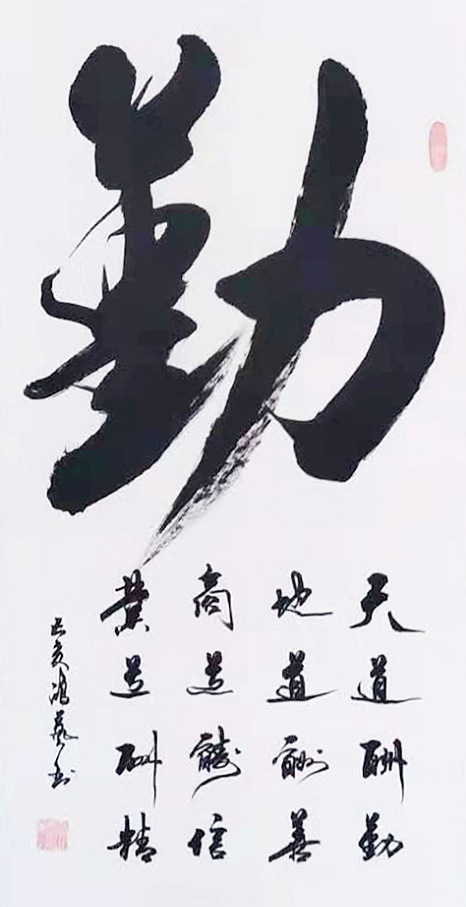 勤
天道酬勤
地道酬善
商道酬信
業道酬精
己亥